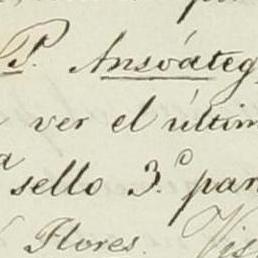 P. Ansoáteg
ver el últim
sello 3.º par
Flores. Vis